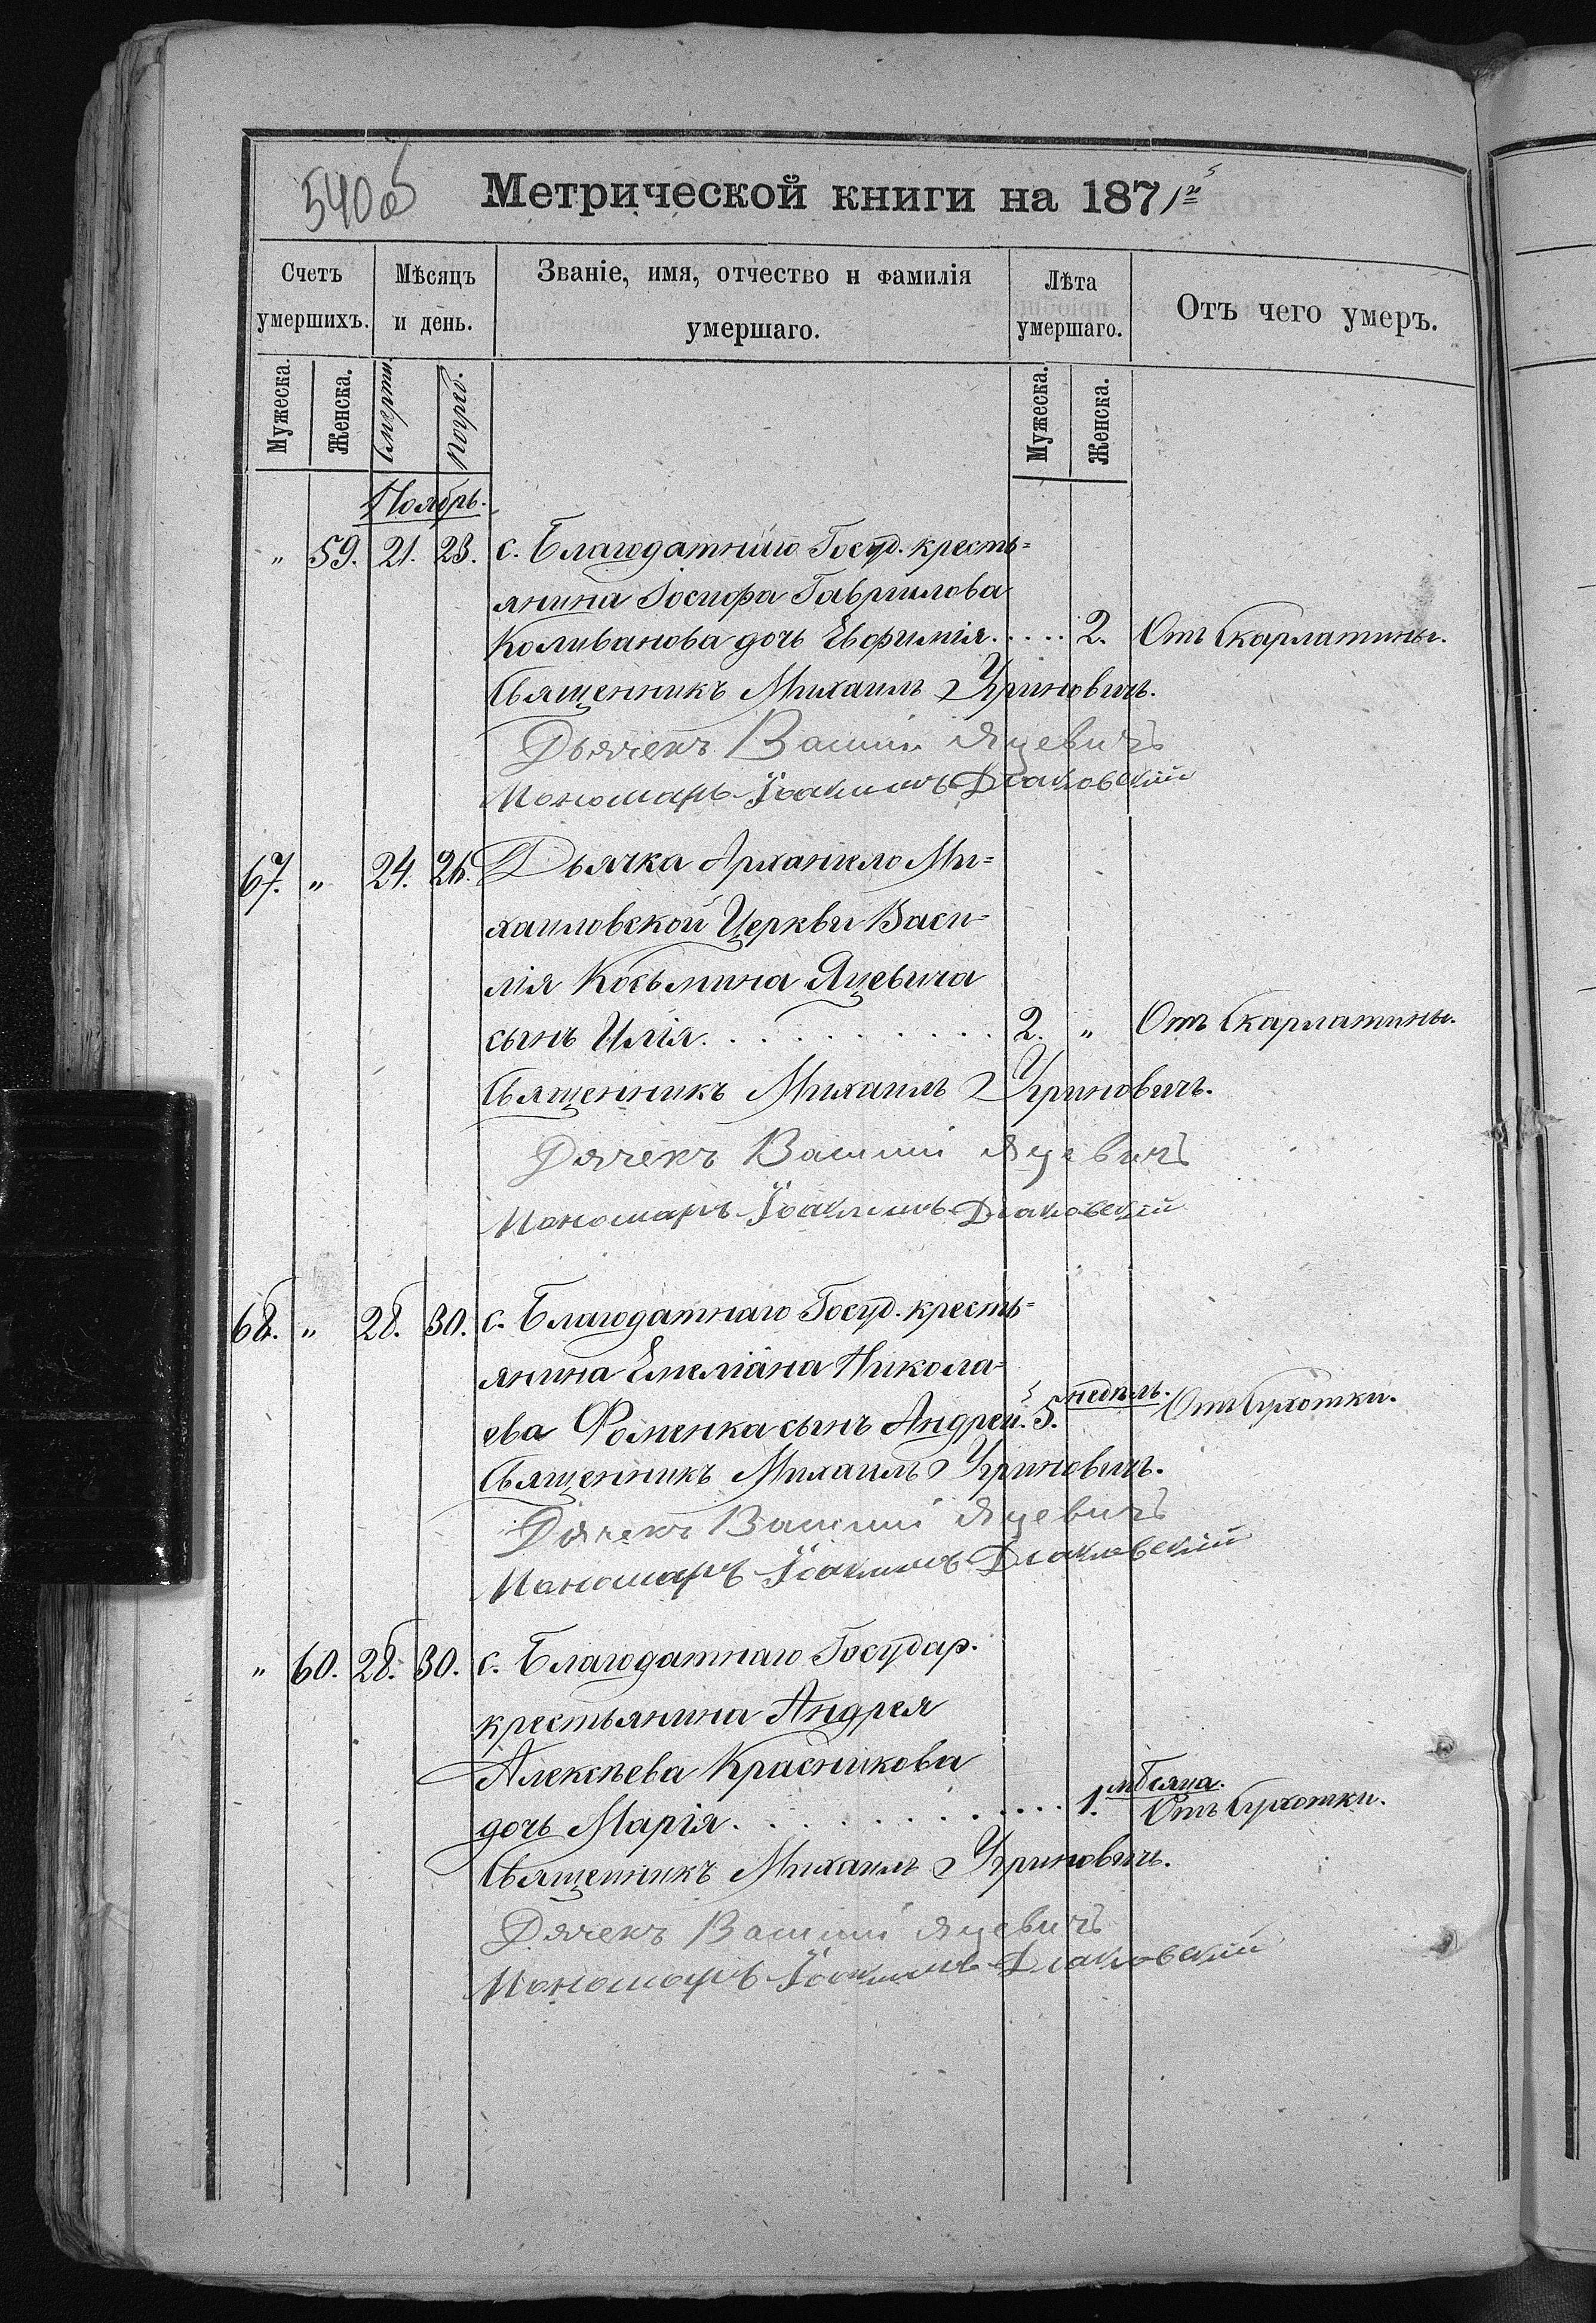 540об
Метрической книги на 1871й
Счетъ умершихъ.
Мѣсяцъ и день.
Званіе, имя, отчество и фамилія умершаго.
Лѣта умершаго.
Отъ чего умеръ.
Мужеска.
Женска.
Смерти.
Погреб.
Мужеска.
Женска.
Ноябрь.
" 59. 21. 23. с. Благодатнаго Госуд. кресть=
янина Іосифа Гаврилова
Коливанова дочь Евфимія. . . . . 2. Отъ Скарлатины.
Священникъ Михаилъ Угриновичъ.
Дьячекъ Василій Яцевичъ
Пономарь Іоакимъ Діаковскій
67. " 24. 26. Дьячка Архангело Ми=
хаиловской Церкви Васи=
лія Козьмина Яцевича
сынъ Илія. . . . . . . . . 2. " Отъ Скарлатины.
Священникъ Михаилъ Угриновичъ.
Дячекъ Василий Яцевичъ
Пономарь Іоакимъ Діаковскій
68. " 28. 30. с. Благодатнаго Госуд. кресть=
янина Емеліана Никола=
ева Фоменка сынъ Андрей. 5. недѣль. Отъ Сухотки.
Священникъ Михаилъ Угриновичъ.
Дячекъ Василий Яцевичъ
Пономарь Іоакимъ Діаковскій
" 60. 28. 30. с. Благодатнаго Государ.
крестьянина Андрея
Алексѣева Красникова
дочь Марія. . . . . . . . . . . 1. мѣсяца. Отъ Сухотки.
Священникъ Михаилъ Угриновичъ.
Дячекъ Василий Яцевичъ
Пономарь Іоакимъ Діаковскій